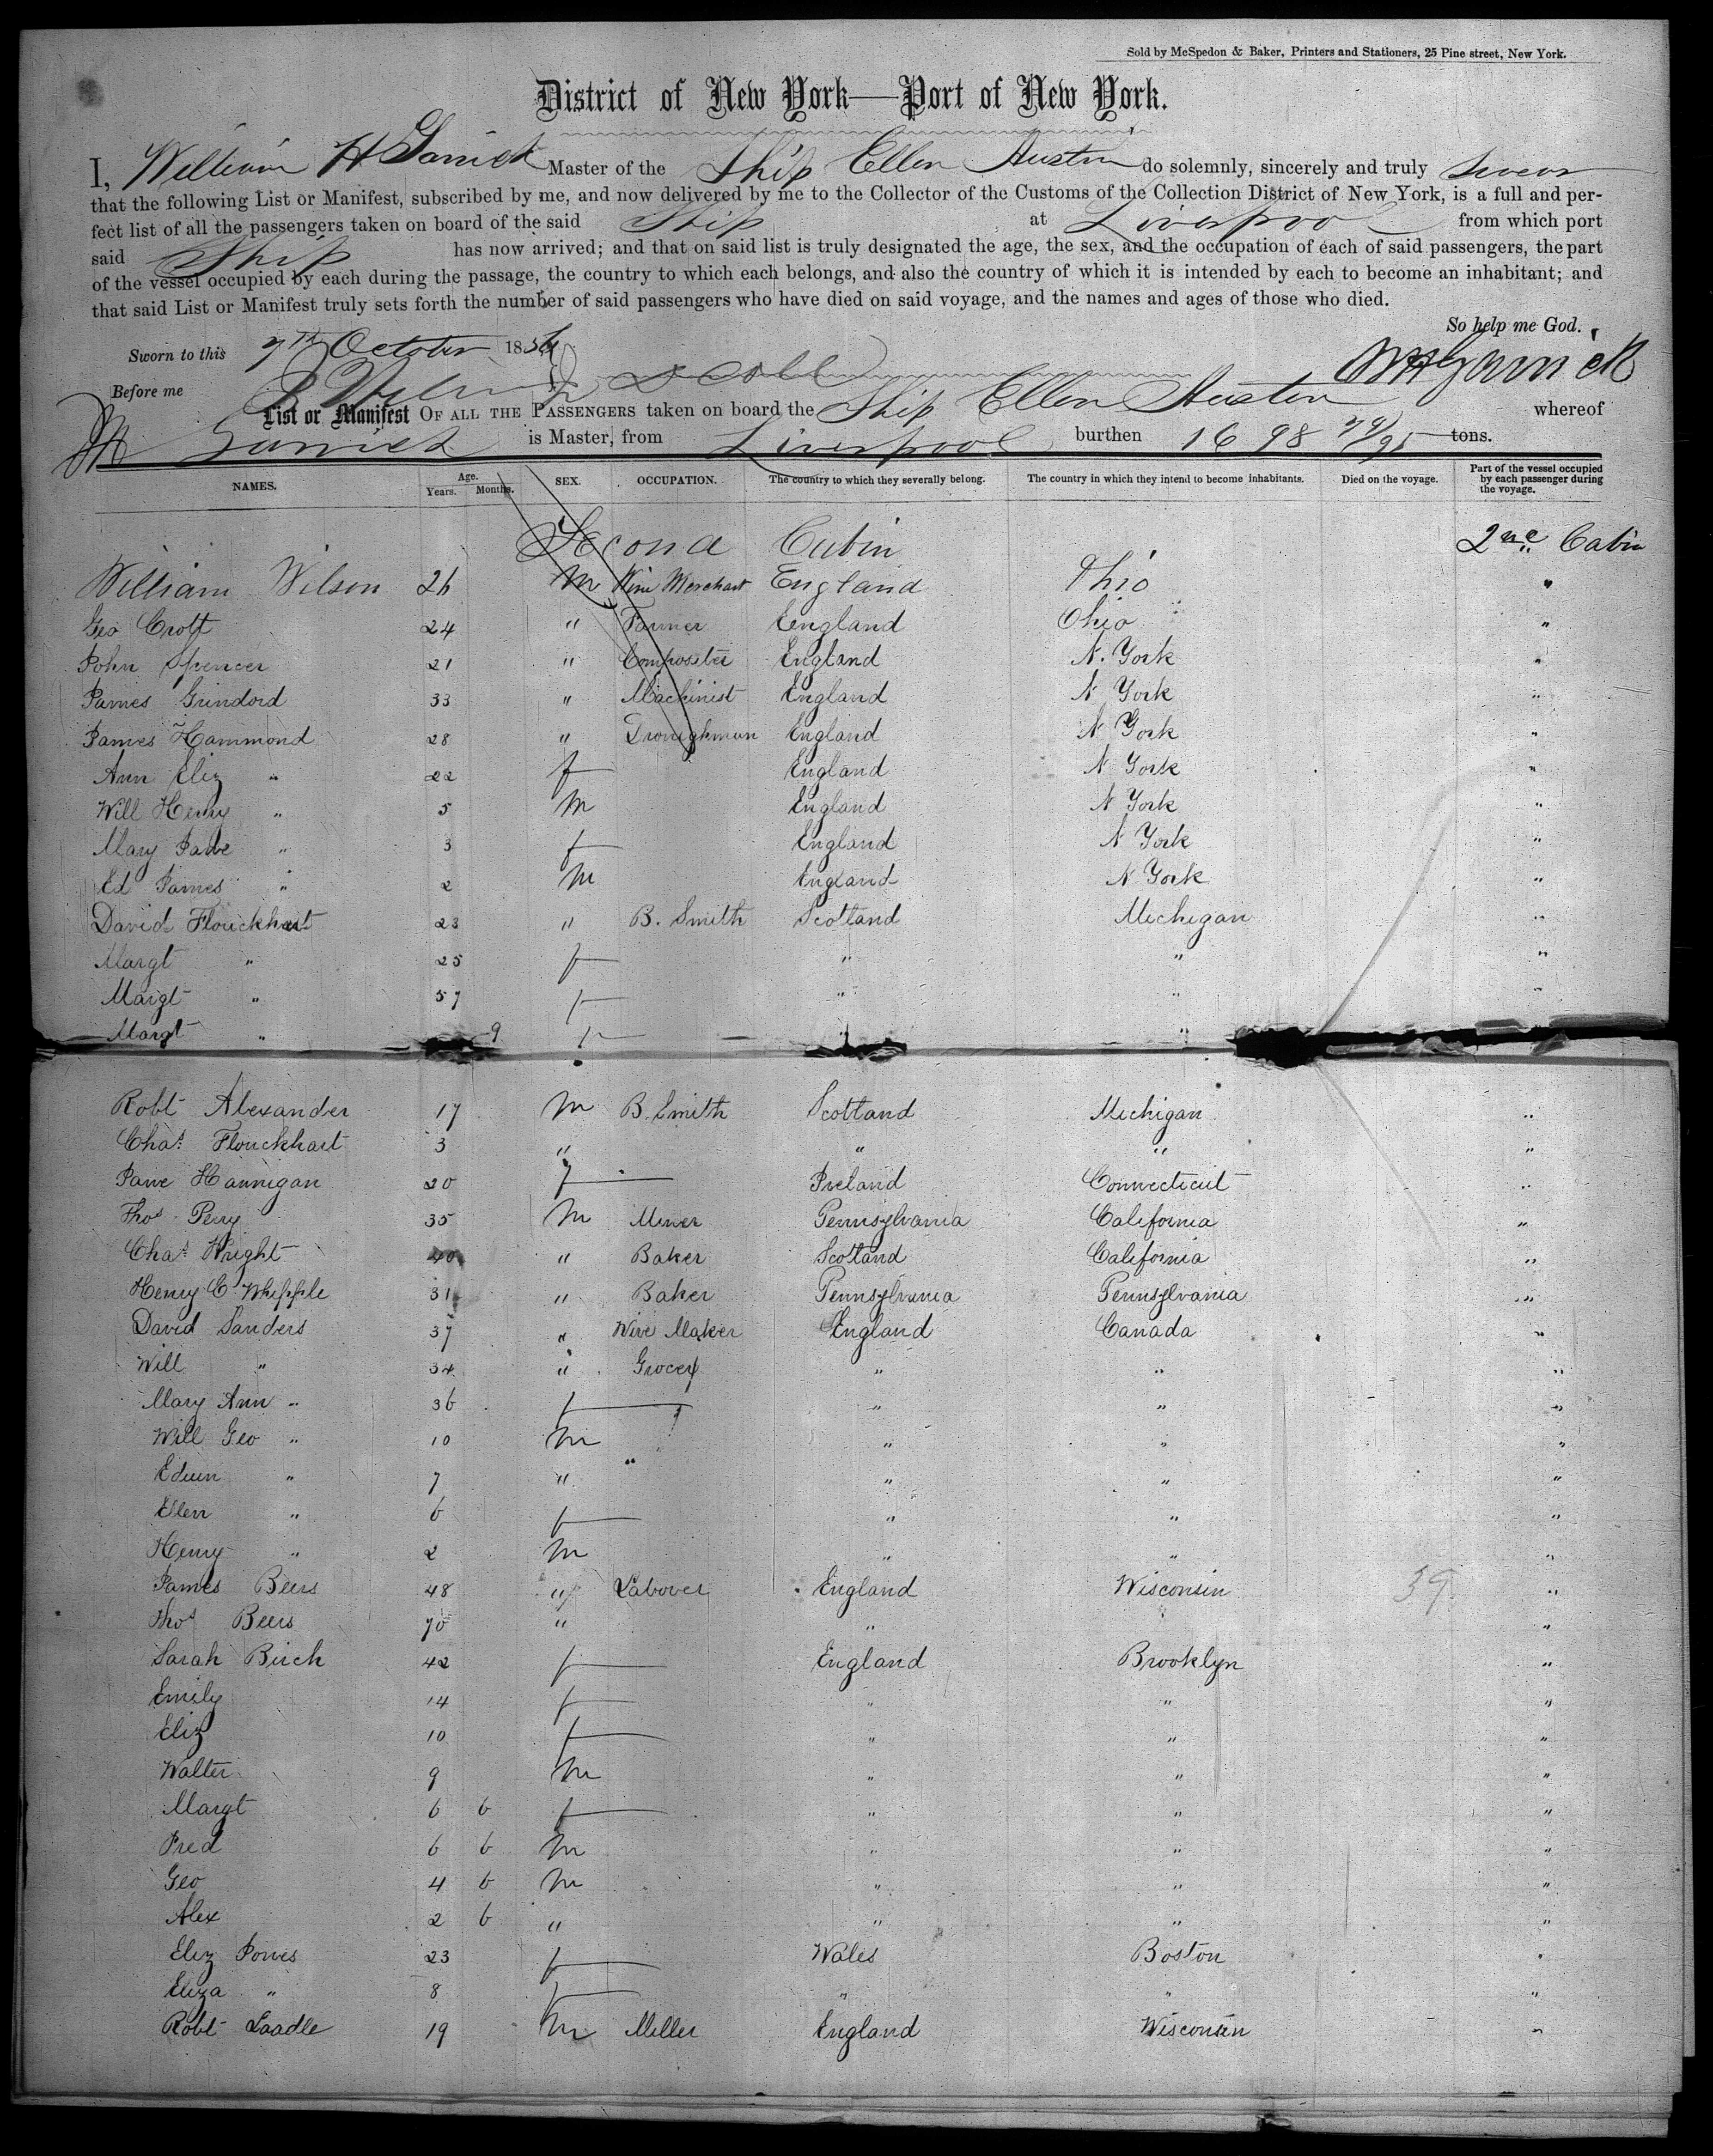 Sold by McSpedon & Baker, Printers and Stationers, 25 Pine street, New York.
District of New York—Port of New York.
I, William H Garrick Master of the Ship Ellen Austin do solemnly, sincerely and truly swear
that the following List or Manifest, subscribed by me, and now delivered by me to the Collector of the Customs of the Collection District of New York, is a full and per-
fect list of all the passengers taken on board of the said Ship at Liverpool from which port
said Ship has now arrived; and that on said list is truly designated the age, the sex, and the occupation of each of said passengers, the part
of the vessel occupied by each during the passage, the country to which each belongs, and also the country of which it is intended by each to become an inhabitant; and
that said List or Manifest truly sets forth the number of said passengers who have died on said voyage, and the names and ages of those who died.
So help me God.
Sworn to this 7th October 185
WH Garrick
Before me
List or Manifest OF ALL THE PASSENGERS taken on board the Ship Ellen Austin whereof
Garrick is Master, from Liverpool burthen 1698 74/95 tons.
NAMES. Age. Years. Months. SEX. OCCUPATION. The country to which they severally belong. The country in which they intend to become inhabitants. Died on the voyage. Part of the vessel occupied by each passenger during the voyage.
Second Cabin 2nd Cabin
William Wilson 26 M Wine Merchant England Ohio "
Geo Croft 24 " Farmer England Ohio "
John Spencer 21 " Compositer England N. York "
James Grindord 33 " Machinist England N York "
James Hammond 28 " Droughman England N York "
Ann Eliz " 22 f England N York "
Will Henry " 5 M England N York "
Mary Jane " 3 f England N York "
Ed James " 2 M England N York "
David Flouckhart 23 " B. Smith Scotland Michigan "
Margt " 25 f " " "
Margt " 57 f " " "
Margt " 9 f " "
Robt Alexander 17 M B. Smith Scotland Michigan "
Chas Flouckhart 3 " " " "
Jane Hannigan 20 f Ireland Connecticut "
Thos Perry 35 M Miner Pennsylvania California "
Chas Wright 40 " Baker Scotland California "
Henry C Whipple 31 " Baker Pennsylvania Pennsylvania "
David Sanders 37 " Wire Maker England Canada "
Will " 34 " Grocer " " "
Mary Ann " 36 f " " "
Will Geo " 10 M " " "
Edwin " 7 " " " "
Ellen " 6 f " " "
Henry " 2 M " " "
James Beers 48 " Labourer England Wisconsin 39 "
Thos Beers 70 " " "
Sarah Birch 42 f England Brooklyn "
Emily 14 f " " "
Eliz 10 f " " "
Walter 9 M " " "
Margt 6 6 f " " "
Fred 6 6 M " " "
Geo 4 6 M " " "
Alex 2 6 " " " "
Eliz Jones 23 f Wales Boston "
Eliza " 8 f " " "
Robt Laadle 19 M Miller England Wisconsin "